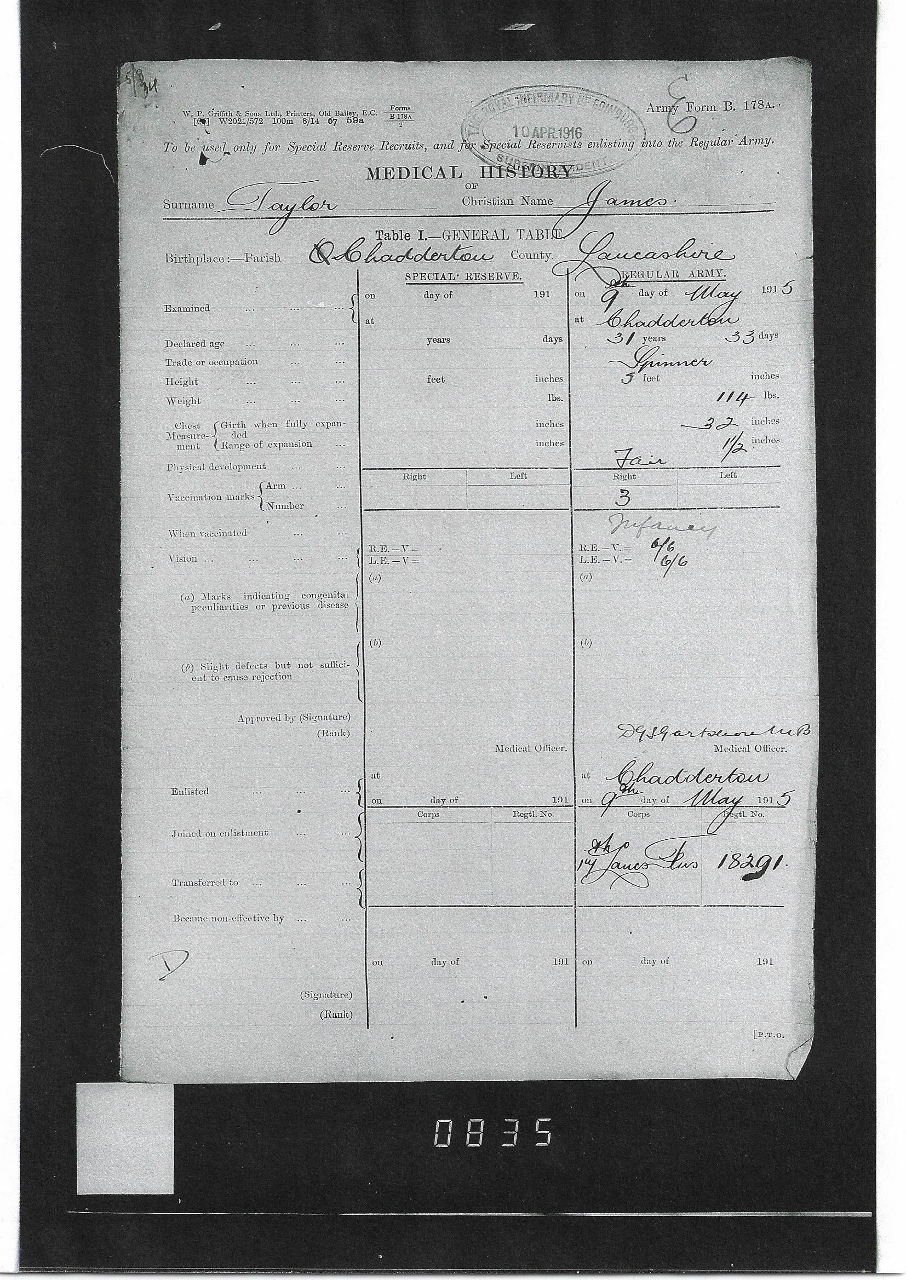 W. P. Griffith & Sons Ltd., Printers, Old Bailey, E.C.
W2021/572 100m 8/14 67 59a
Forms
B 178A
2
THE ROYAL INFIRMARY OF EDINBURGH
10 APR 1916
SUPERINTENDENT
E
Army Form B. 178A.
To be used only for Special Reserve Recruits, and for Special Reservists enlisting into the Regular Army.
MEDICAL HISTORY
OF
Surname Taylor Christian Name James.
Table I.—GENERAL TABLE.
Birthplace:—Parish Chadderton County Lancashire
SPECIAL RESERVE. REGULAR ARMY.
Examined ... ... ... on day of 191 on 9th day of May 1915
at at Chadderton
Declared age ... ... ... years days 31 years 33 days
Trade or occupation ... ... Spinner
Height ... ... ... feet inches 5 feet inches
Weight ... ... ... lbs. 114 lbs.
Chest Measurement Girth when fully expanded inches 32 inches
Range of expansion ... inches 1 1/2 inches
Physical development ... Fair
Right Left Right Left
Vaccination marks Arm ... ...
Number 3
When vaccinated ... ... Infancy
Vision ... ... ... R.E.—V.= R.E.—V.= 6/6
L.E.—V= L.E.—V.= 6/6
(a) (a)
(a) Marks indicating congenital peculiarities or previous disease
(b) (b)
(b) Slight defects but not sufficient to cause rejection
Approved by (Signature)
(Rank) M B
Medical Officer. Medical Officer.
at at Chadderton
Enlisted ... ... ... on day of 191 on 9th day of May 1915
Corps Regtl. No. Corps Regtl. No.
Joined on enlistment ... ...
17th Lancs Fus 18291.
Transferred to ... ... ...
Became non-effective by ... ...
D
on day of 191 on day of 191
(Signature)
(Rank)
[P.T.O.
0835